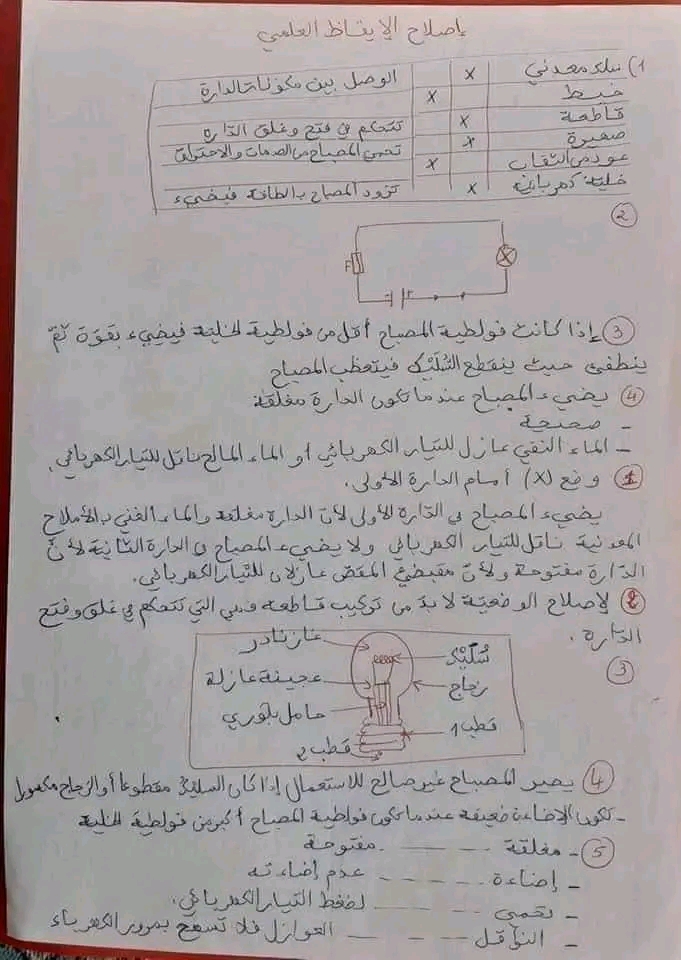 إصلاح الإيقاظ العلمي
1) سلك معدني x الوصل بين مكونات الدارة
خيط x
قاطعة x تتحكم في فتح وغلق الدارة
صهيرة x تحمي المصباح من الصدمات والاحتراق
عود من الثقاب x
خلية كهربائية x تزود المصباح بالطاقة فيضيء
2
F
3 إذا كانت فولطية المصباح أقل من فولطية الخلية فيضيء بقوة ثمّ
ينطفئ حيث ينقطع السُّلَيْك فيتعطب المصباح
4 يضيء المصباح عندما تكون الدارة مغلقة
- صحيحة
- الماء النقي عازل للتيار الكهربائي أو الماء المالح ناقل للتيار الكهربائي.
1 وضع (X) أمام الدارة الأولى.
يضيء المصباح في الدّارة الأولى لأن الدارة مغلقة والماء الغني بالأملاح
المعدنية ناقل للتيار الكهربائي ولا يضيء المصباح في الدارة الثانية لأنّ
الدّارة مفتوحة ولأنّ مقبضي المقص عازلان للتيار الكهربائي.
2 لإصلاح الوضعية لا بد من تركيب قاطعة فهي التي تتحكم في غلق وفتح
الدّارة.
3
غاز نادر سُلَيْك
عجينة عازلة زجاج
حامل بلوري قطب 1
قطب 2
4 يصير المصباح غير صالح للاستعمال إذا كان السليك مقطوعا أو الزجاج مكسورا
- تكون الإضاءة ضعيفة عندما تكون فولطية المصباح أكبر من فولطية الخلية
5 - مغلقة ---- مفتوحة
- إضاءة ---- عدم إضاءته
- تحمي ---- لضغط التيار الكهربائي.
- النواقل ---- العوازل فلا تسمح بمرور الكهرباء